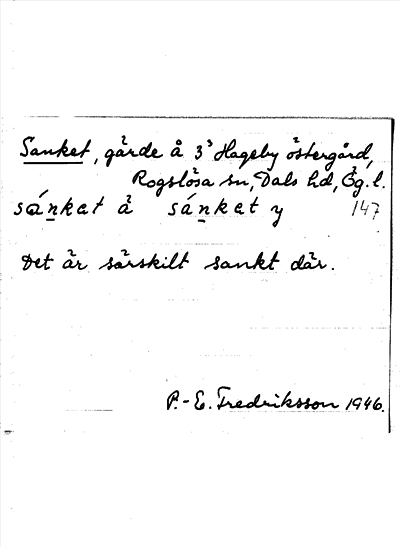 Sanket, gärde å 3³ Hageby östergård,
Rogslösa sn, Dals hd, Ög. l.
sánket å sánket y 147
Det är särskilt sankt där.
P.-E. Fredriksson 1946.